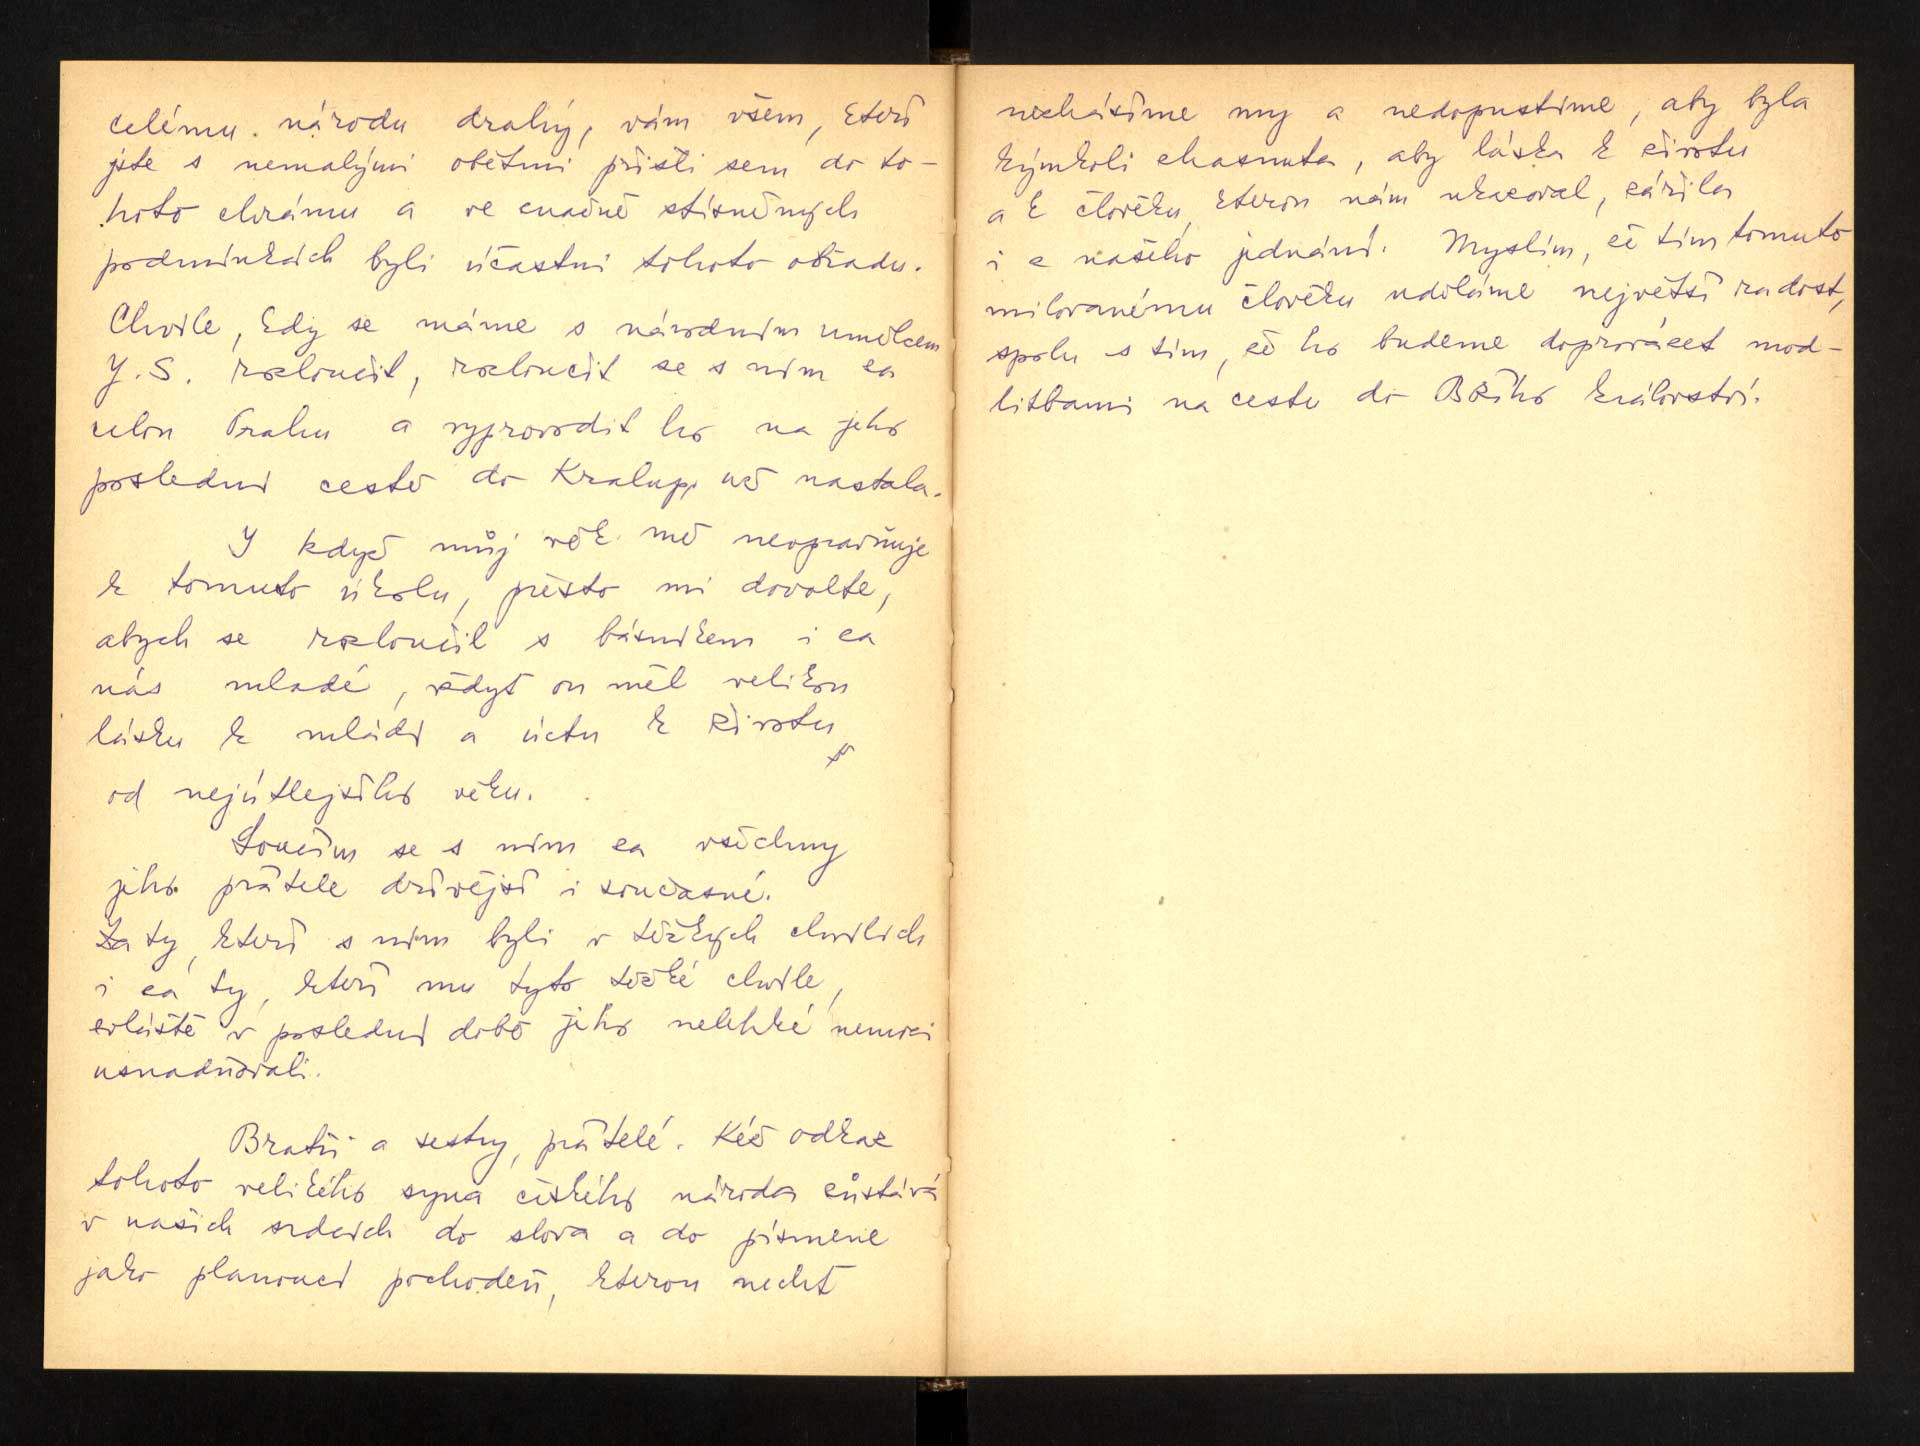 celému národu drahý, vám všem, kteří
jste s nemalými obětmi přišli sem do to-
hoto chrámu a ve značně stísněných
podmínkách byli účastni tohoto obřadu.
Chvíle, kdy se máme s národním umělcem
J. S. rozloučit, rozloučit se s ním za
celou Prahu a vyprovodit ho na jeho
poslední cestě do Kralup, už nastala.
I když můj věk mě neopravňuje
k tomuto úkolu, přesto mi dovolte,
abych se rozloučil s básníkem i za
nás mladé, vždyť on měl velikou
lásku k mládí a úctu k životu
od nejútlejšího věku.
Loučím se s ním za všechny
jeho přátele dřívější i současné.
Za ty, kteří s ním byli v těžkých chvílích
i za ty, kteří mu tyto těžké chvíle,
zvláště v poslední době jeho nelehké nemoci
usnadňovali.
Bratři a sestry, přátelé. Kéž odkaz
tohoto velikého syna českého národa zůstává
v našich srdcích do slova a do písmene
jako planoucí pochodeň, kterou nechť
nezhášíme my a nedopustíme, aby byla
kýmkoli zhasnuta, aby láska k životu
a k člověku, kterou nám ukazoval, zářila
i z našeho jednání. Myslím, že tím tomuto
milovanému člověku uděláme největší radost,
spolu s tím, že ho budeme doprovázet mod-
litbami na cestu do Božího království.